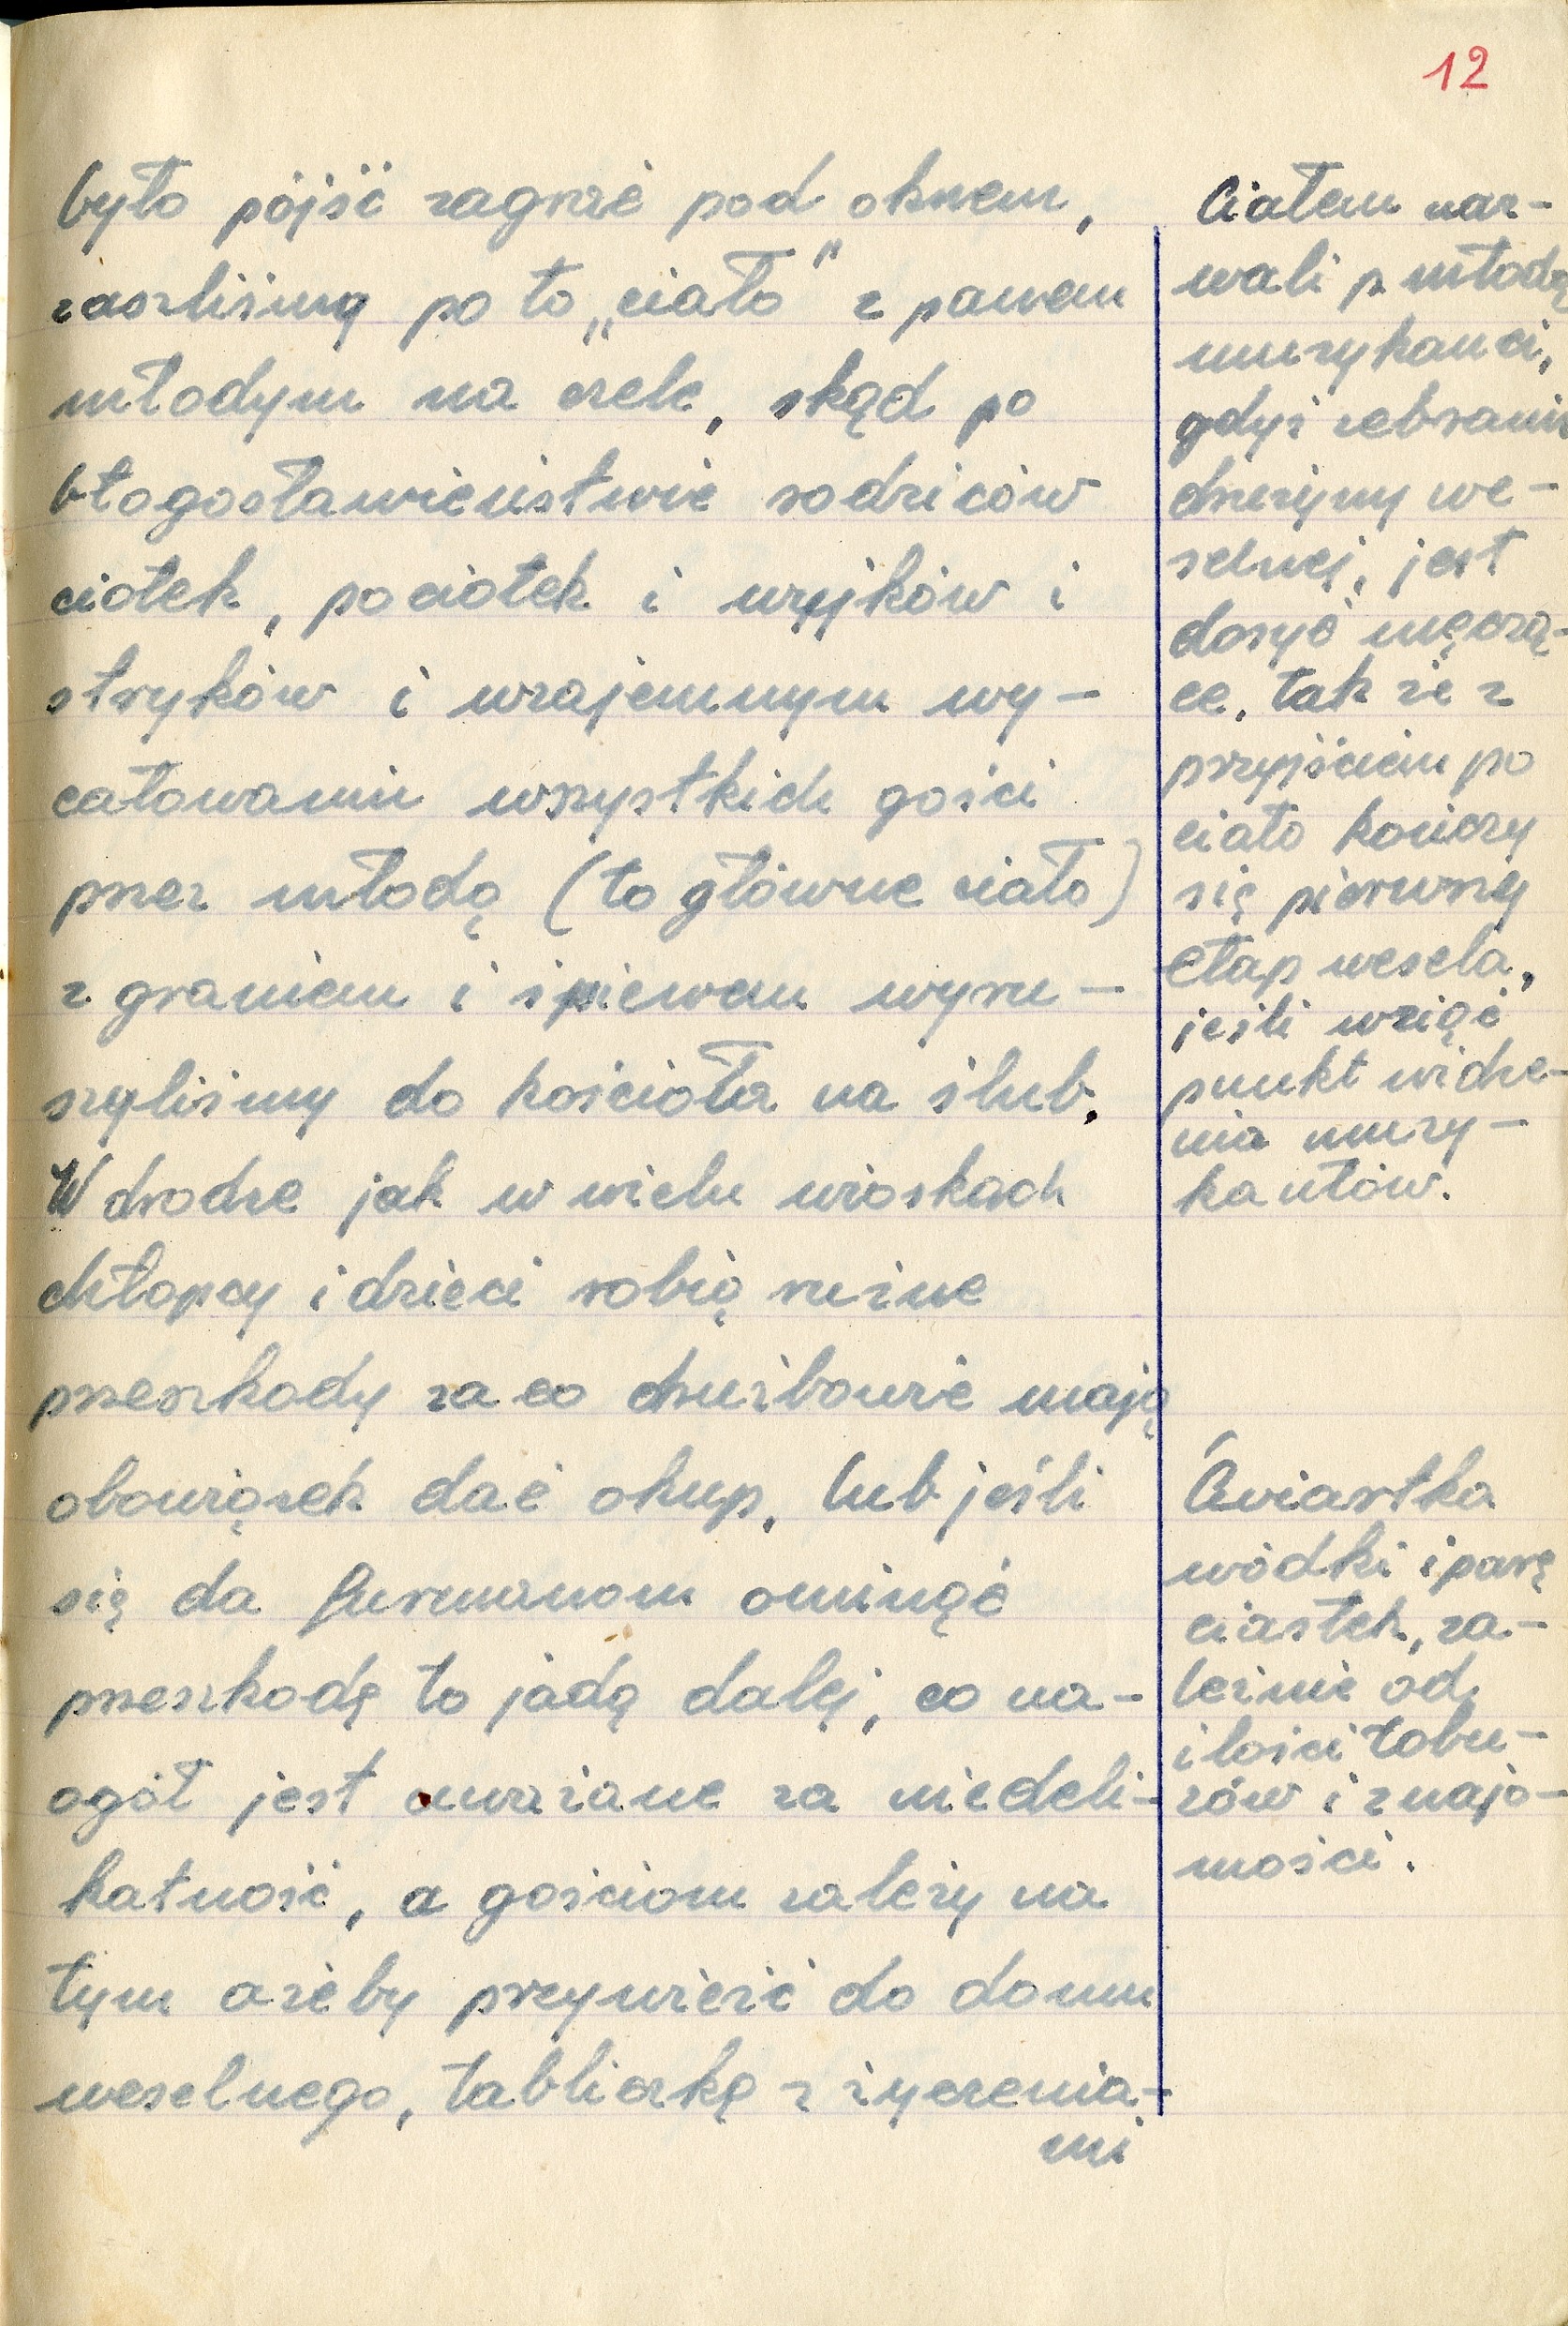 12
było pójść zagrać pod oknem,
zaszliśmy po to „ciało" z panem
młodym na czele, skąd po
błogosławieństwie rodziców
ciotek, pociotek i wujków i
stryków i wzajemnym wy-
całowaniu wszystkich gości
przez młodą (to główne ciało)
z graniem i śpiewem wyru-
szyliśmy do kościoła na ślub.
W drodze jak w wielu wioskach
chłopcy i dzieci robią różne
przeszkody za co drużbowie mają
obowiązek dać okup, lub jeśli
się da furmanom ominąć
przeszkodę to jadą dalej, co na-
ogół jest uważane za niedeli-
katność, a gościom zależy na
tym ażeby przywieźć do domu
weselnego, tabliczkę z życzenia-
mi
Ciałem naz-
wali p. młodą
muzykanci,
gdyż zebranie
drużyny we-
selnej, jest
dosyć męczą-
ce, tak że z
przyjściem po
ciało kończy
się pierwszy
etap wesela,
jeśli wziąć
punkt widze-
nia muzy-
kantów.
Ćwiartka
wódki i parę
ciastek, za-
leżnie od
ilości łobu-
zów i znajo-
mości.